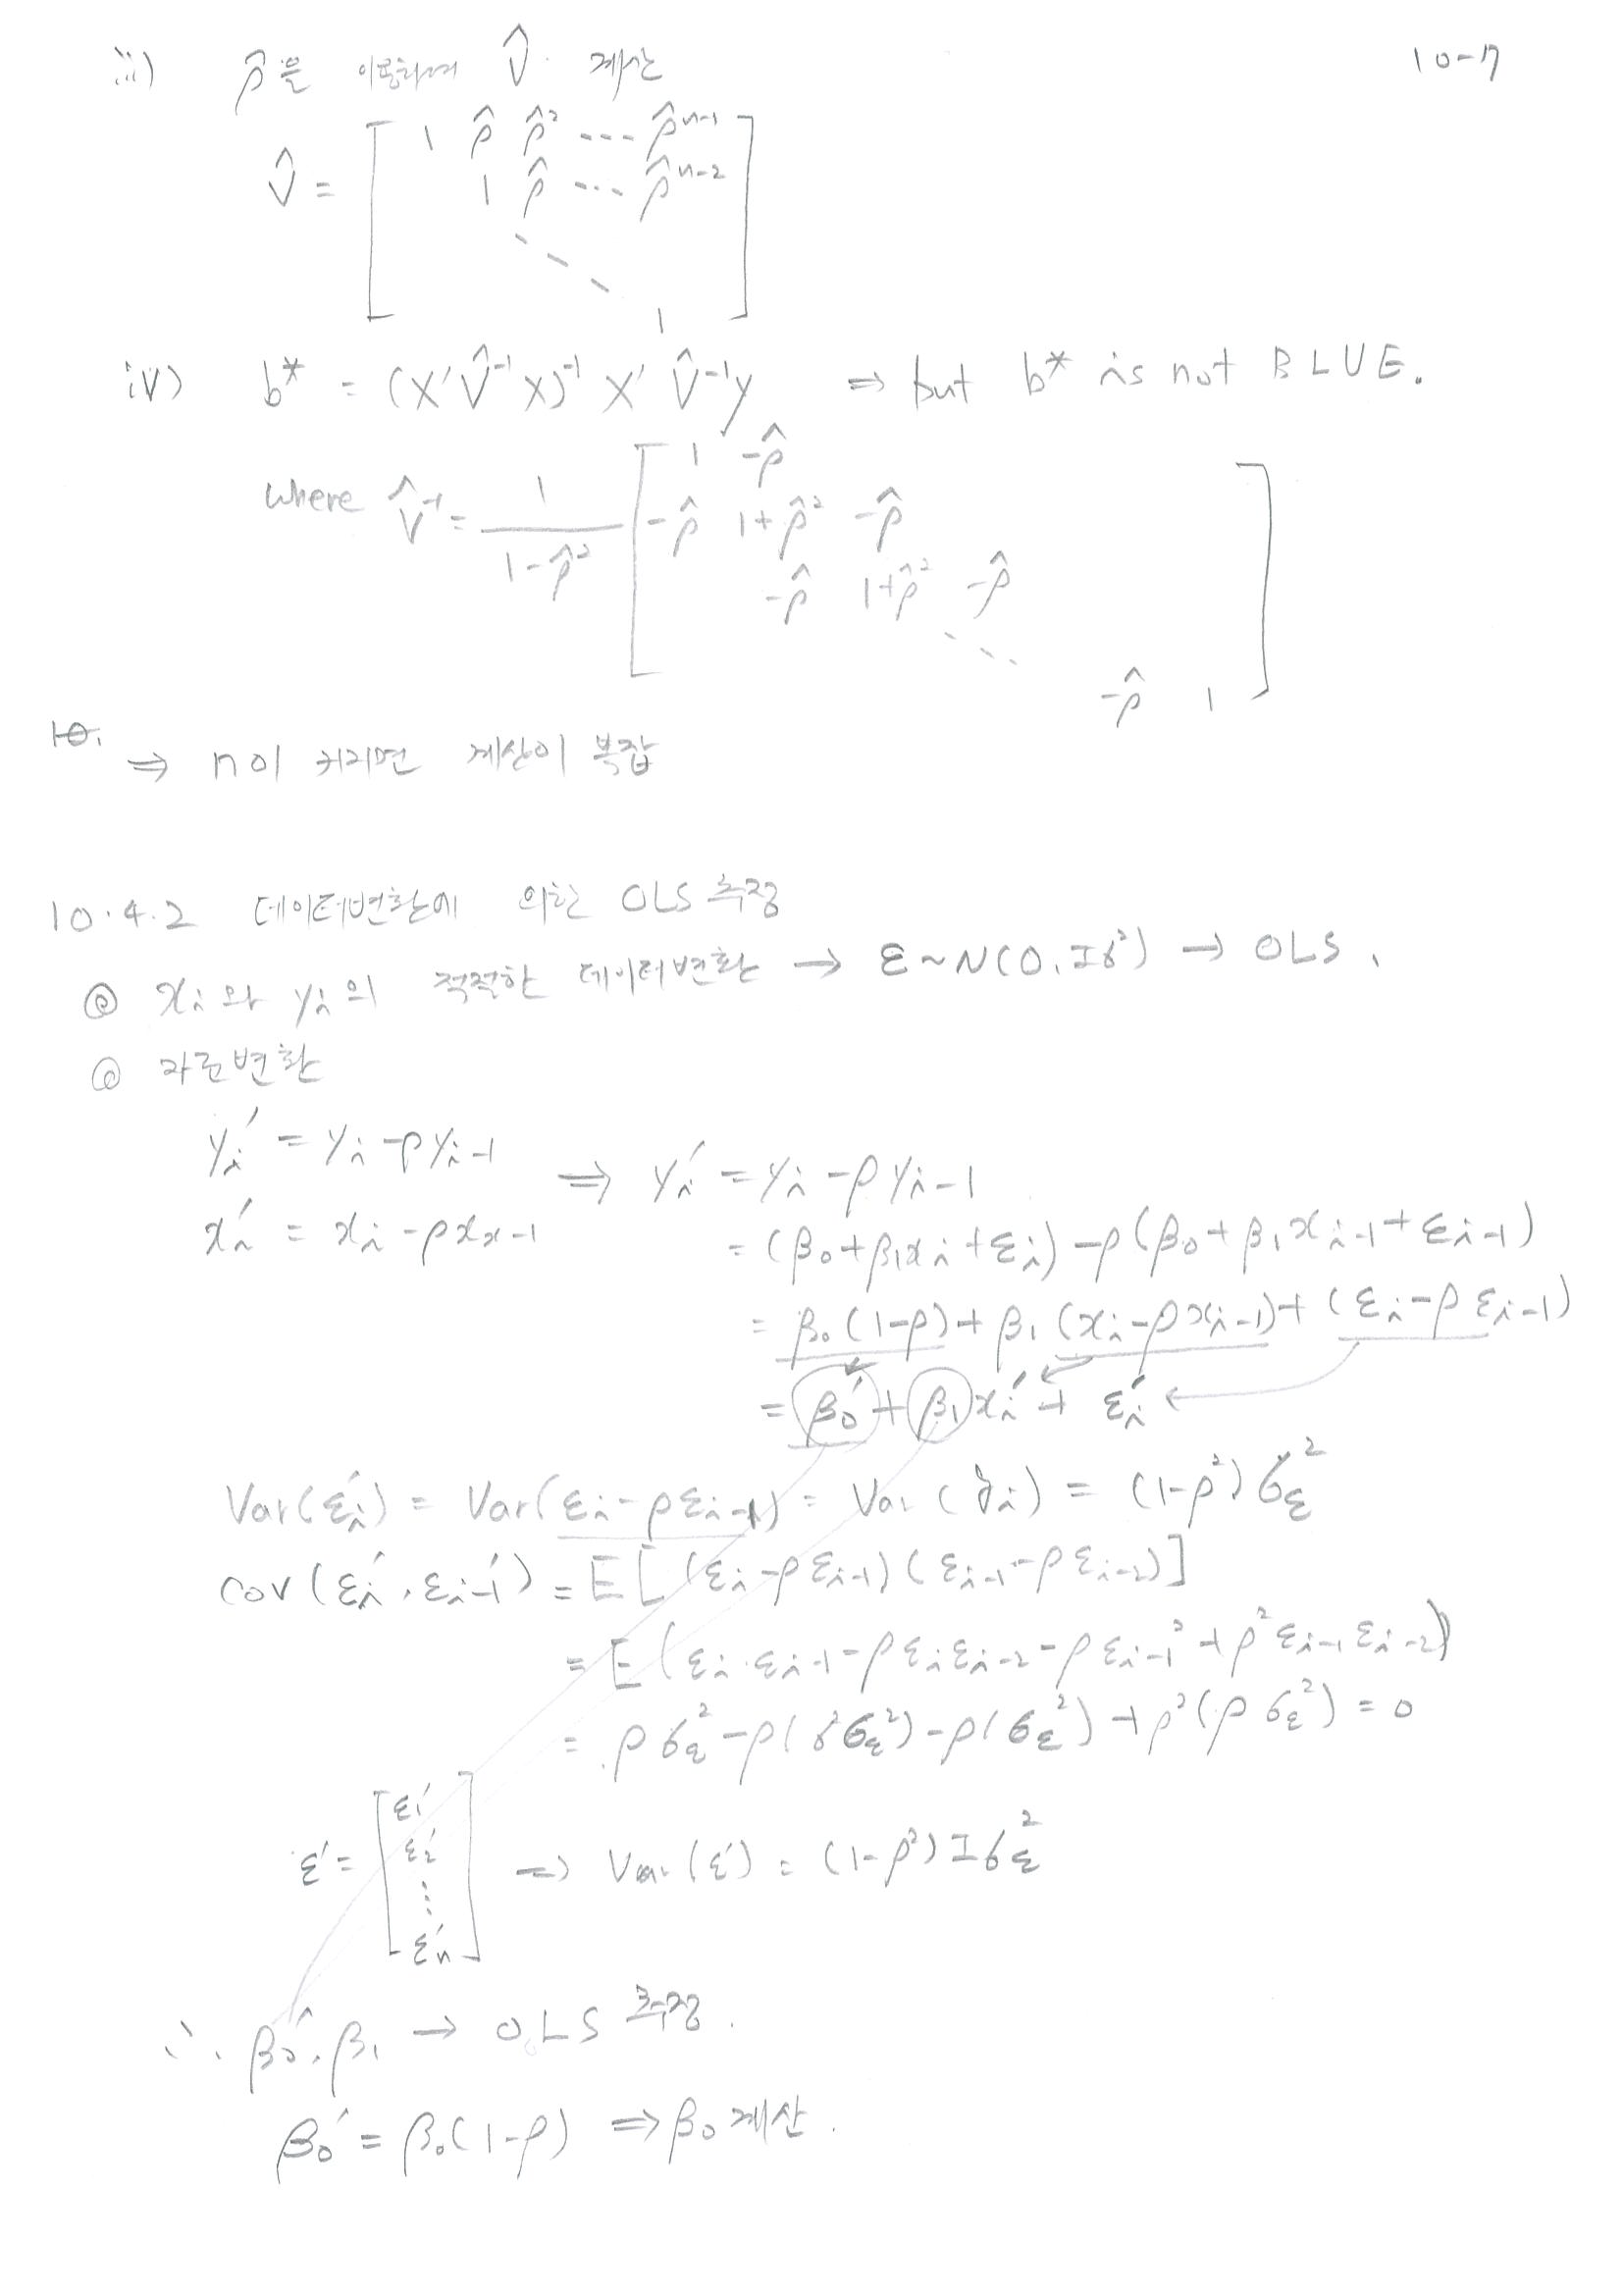 10-7
iii) ρ̂을 이용하여 V̂ 계산
V̂ = [ 1 ρ̂ ρ̂² ... ρ̂ⁿ⁻¹
1 ρ̂ ... ρ̂ⁿ⁻²
⋱
1 ]
iv) b* = (X'V̂⁻¹X)⁻¹ X' V̂⁻¹y ⇒ but b* is not BLUE.
where V̂⁻¹ = 1/(1-ρ̂²) [ 1 -ρ̂
-ρ̂ 1+ρ̂² -ρ̂
-ρ̂ 1+ρ̂² -ρ̂
⋱
-ρ̂ 1 ]
⇒ n이 커지면 계산이 복잡
10.4.2 데이터변환에 의한 OLS 추정
◎ xᵢ와 yᵢ의 적절한 데이터변환 → ε~N(0, Iσ²) → OLS.
◎ 자료변환
yᵢ' = yᵢ - ρyᵢ₋₁ ⇒ yᵢ' = yᵢ - ρyᵢ₋₁
xᵢ' = xᵢ - ρxₓ₋₁ = (β₀+β₁xᵢ+εᵢ) - ρ(β₀+β₁xᵢ₋₁+εᵢ₋₁)
= β₀(1-ρ) + β₁(xᵢ-ρxᵢ₋₁) + (εᵢ-ρεᵢ₋₁)
= β₀' + β₁xᵢ' + εᵢ'
Var(εᵢ') = Var(εᵢ-ρεᵢ₋₁) = Var(δᵢ) = (1-ρ²)σ_ε²
cov(εᵢ', εᵢ₋₁') = E[(εᵢ-ρεᵢ₋₁)(εᵢ₋₁-ρεᵢ₋₂)]
= E(εᵢ·εᵢ₋₁-ρεᵢεᵢ₋₂-ρεᵢ₋₁²+ρ²εᵢ₋₁εᵢ₋₂)
= ρσ_ε²-ρ(δ²σ_ε²)-ρ(σ_ε²)+ρ²(ρσ_ε²) = 0
ε' = [ ε₁'
ε₂'
⋮
εₙ' ] ⇒ Var(ε') = (1-ρ²)Iσ_ε²
∴ β₀', β₁ → OLS 추정.
β₀' = β₀(1-ρ) ⇒ β₀ 계산.